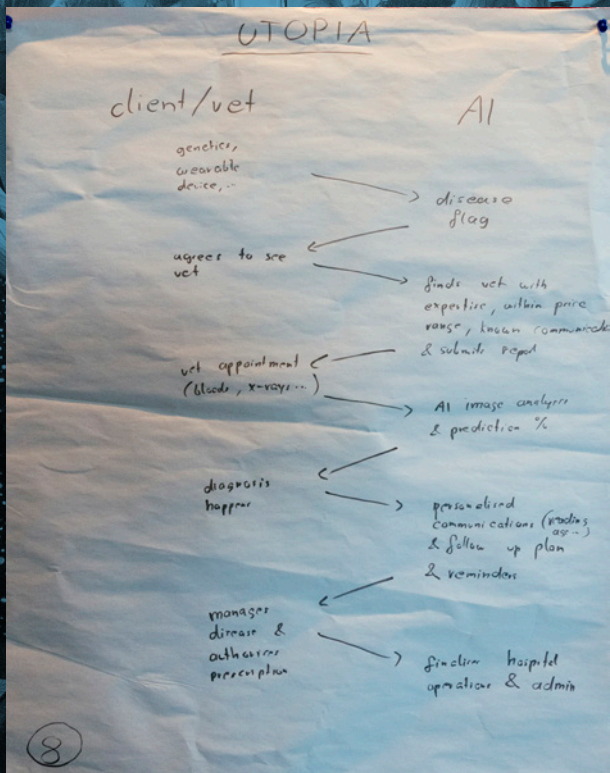 UTOPIA
client/vet
AI
genetics,
wearable
device,..
disease
flag
agrees to see
vet
finds vet with
expertise, within price
range, known communicatio
& submits report
vet appointment
(bloods, x-rays...)
AI image analysis
& prediction %
diagnosis
happens
personalised
communications (reading
age...)
& follow up plan
& reminders
manages
disease &
authorises
prescription
finalises hospital
operations & admin
8